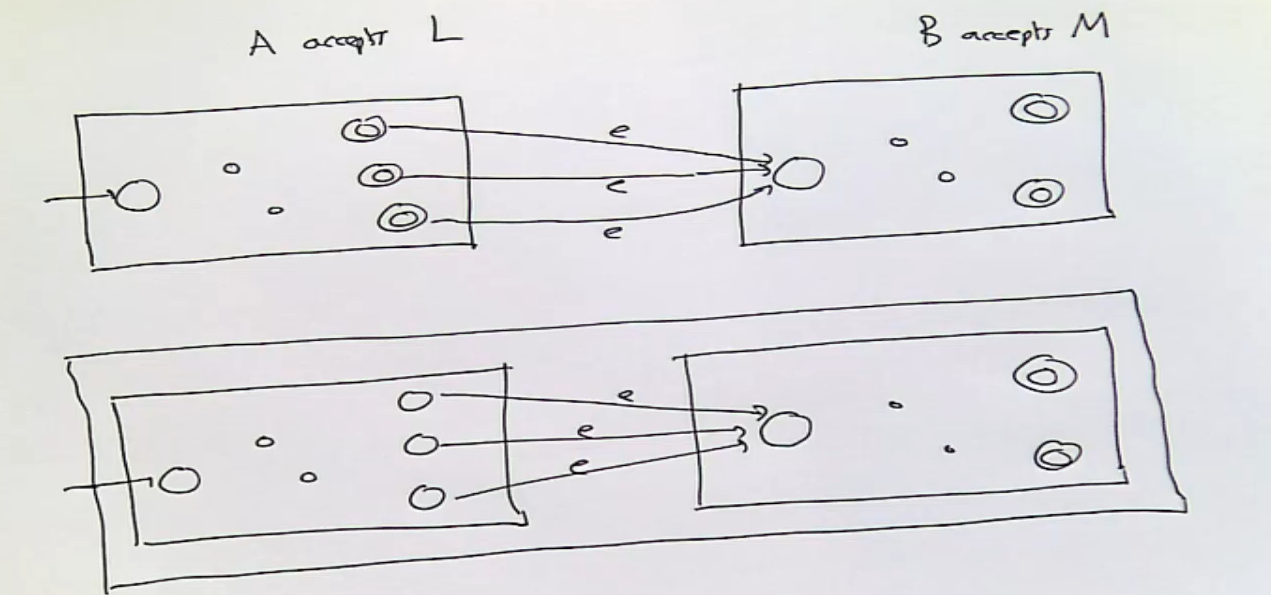 A accepts L
B accepts M
e
e
e
e
e
e